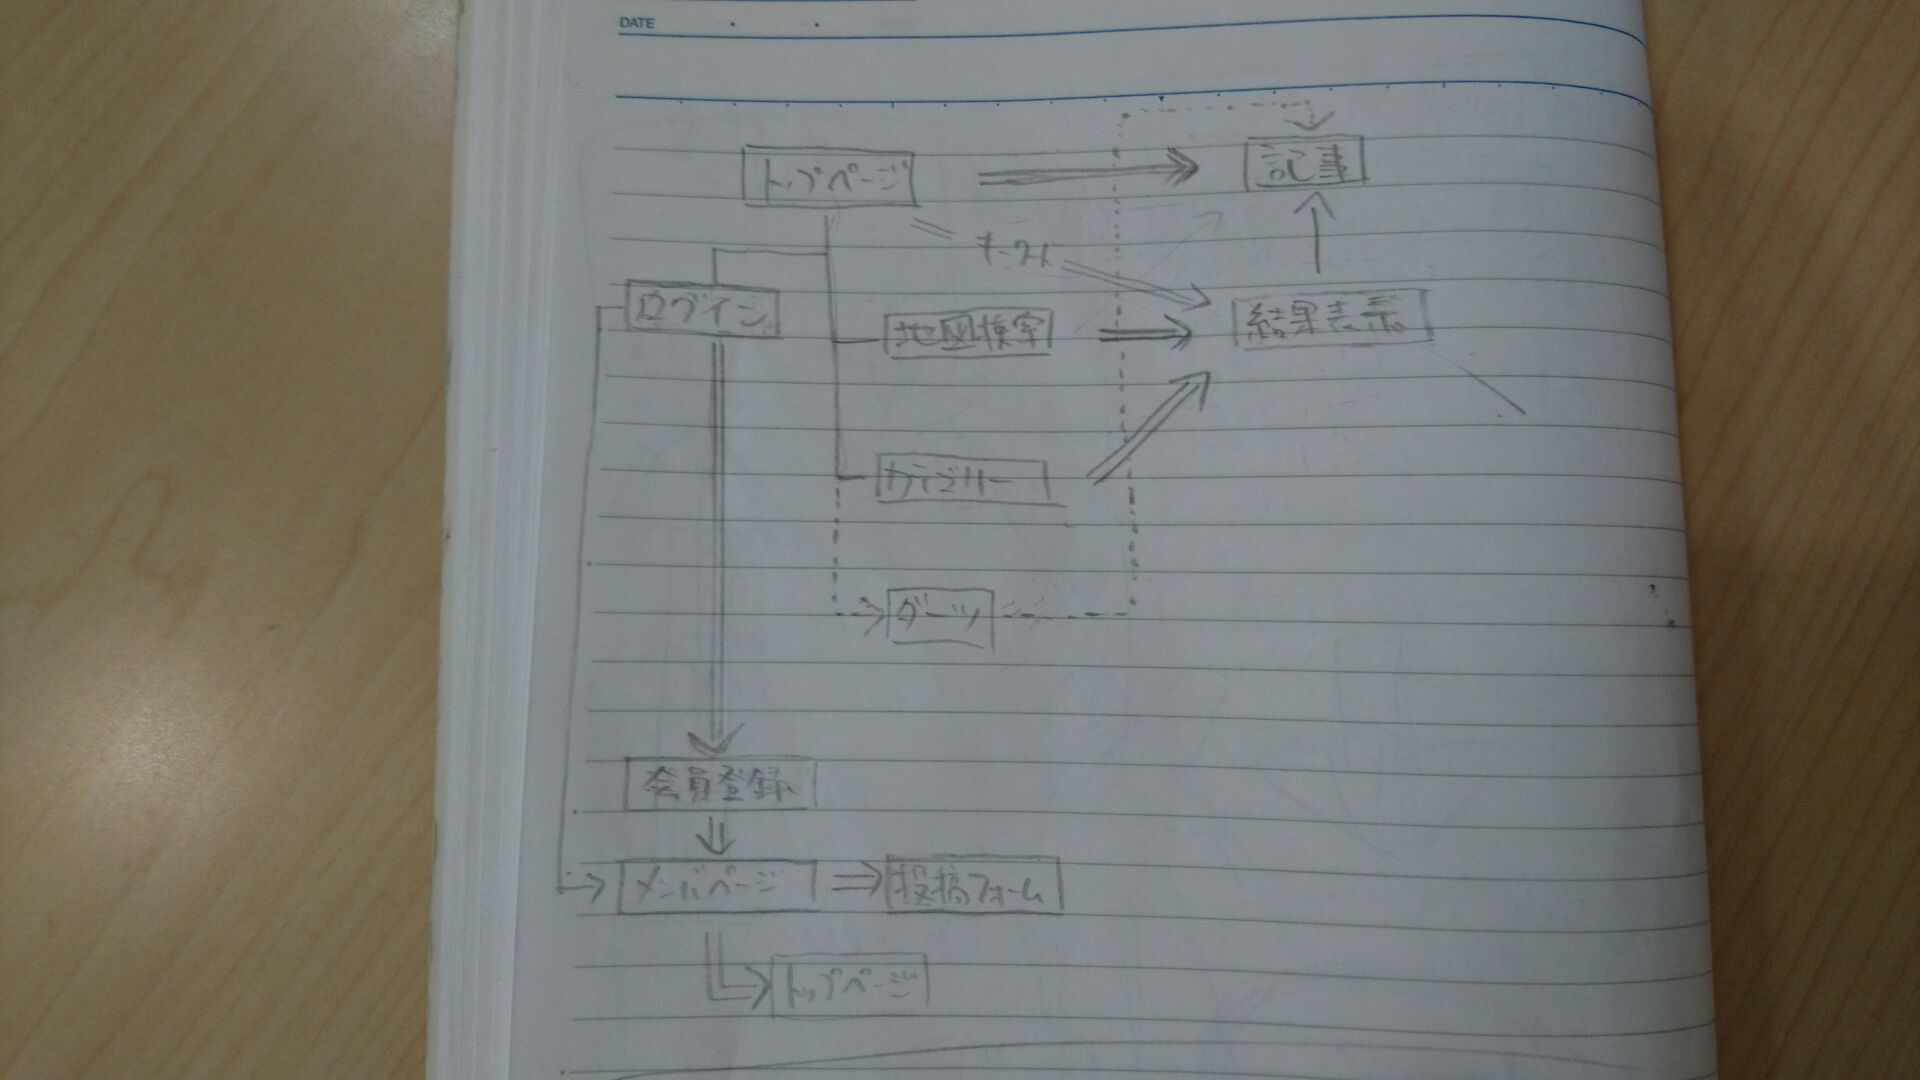 DATE
トップページ
記事
ログイン
地図検索
結果表示
カテゴリー
ダーツ
会員登録
メンバページ
投稿フォーム
トップページ